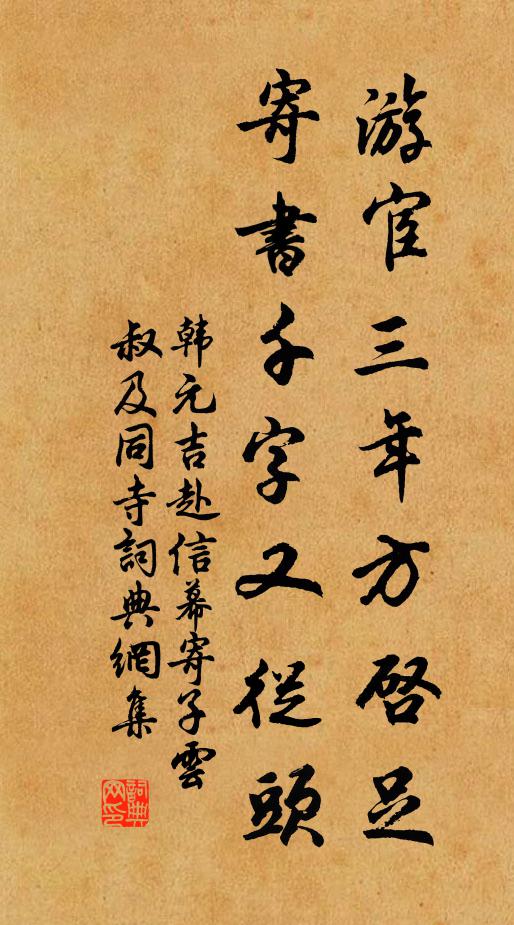 游宦三年方啓足
寄書千字又從頭
韩元吉赴信幕寄子雲
叔及同寺詞典網集
詞典
网印